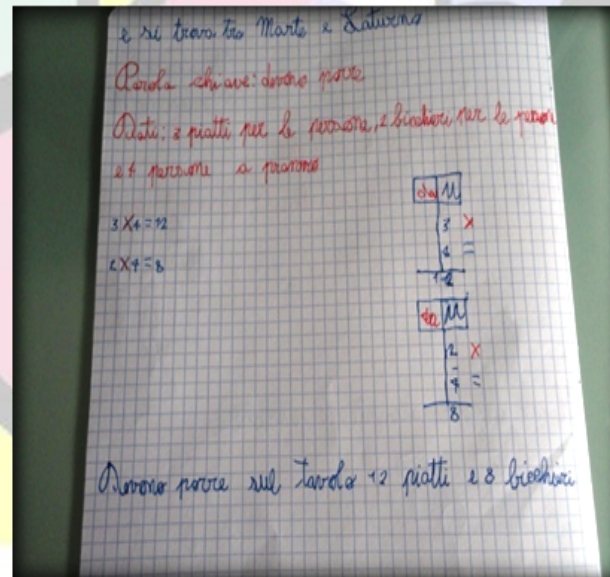 e si trova tra Marte e Saturno
Parola chiave: devono porre
Dati: 3 piatti per le persone, 2 bicchieri per le person
e 4 persone a pranzo
3x4=12
2x4=8
da u
3 x
4 =
12
da u
2 x
4 =
8
Devono porre sul tavolo 12 piatti e 8 bicchieri